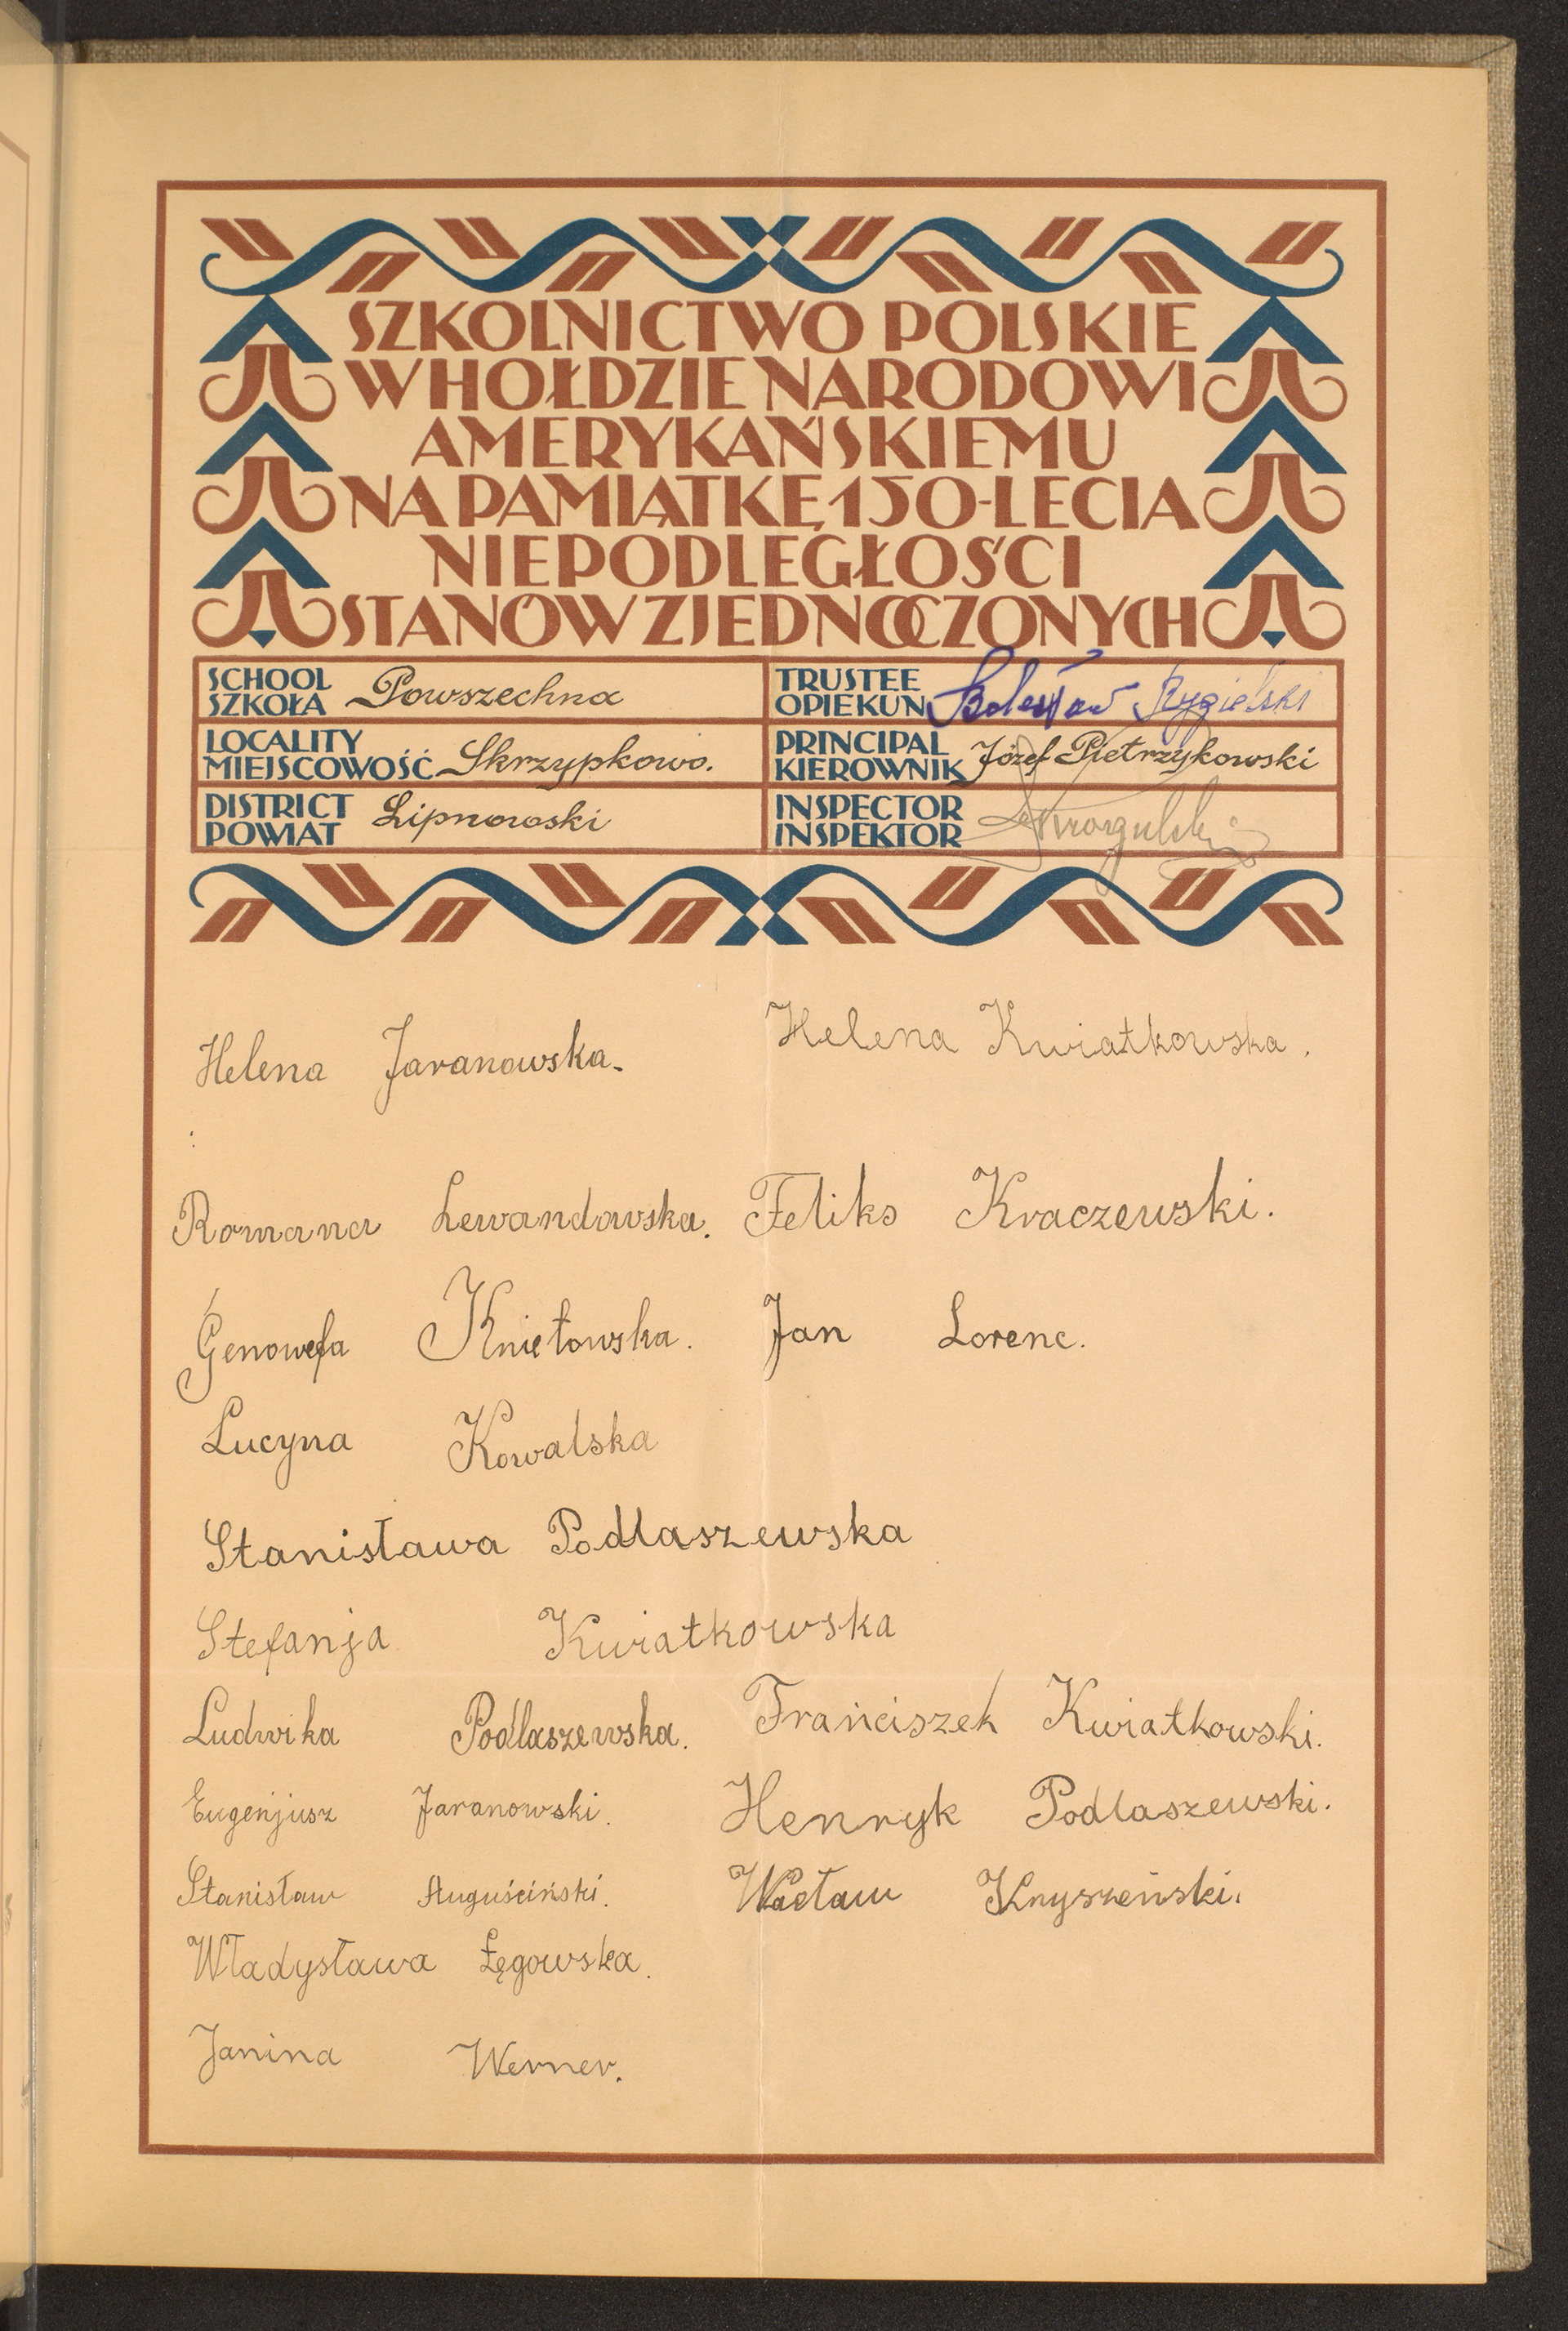 SZKOLNICTWO POLSKIE
W HOŁDZIE NARODOWI
AMERYKAŃSKIEMU
NA PAMIĄTKĘ 150-LECIA
NIEPODLEGŁOŚCI
STANÓW ZJEDNOCZONYCH
SCHOOL
SZKOŁA Powszechna
TRUSTEE
OPIEKUN Bolesław Rygielski
LOCALITY
MIEJSCOWOŚĆ Skrzypkowo.
PRINCIPAL
KIEROWNIK Józef Pietrzykowski
DISTRICT
POWIAT Lipnowski
INSPECTOR
INSPEKTOR
Helena Jaranowska.
Helena Kwiatkowska.
Romana Lewandowska. Feliks Kraczewski.
Genowefa Knietowska. Jan Lorenc.
Lucyna Kowalska
Stanisława Podlaszewska
Stefanja Kwiatkowska
Ludwika Podlaszewska. Franciszek Kwiatkowski.
Eugenjusz Jaranowski. Henryk Podlaszewski.
Stanisław Auguściński. Wacław Knyszeński.
Władysława Łęgowska.
Janina Werner.